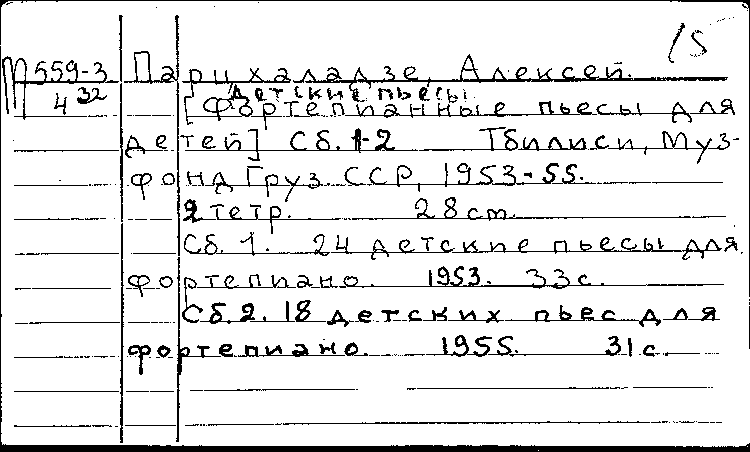 15
М559-3 Парцхаладзе, Алексей.
4 32 Детские пьесы.
[Фортепианные пьесы для
детей] Сб. 1-2 Тбилиси, Муз-
фонд Груз. ССР, 1953-55.
2 тетр. 28 cm.
Сб. 1. 24 детские пьесы для
фортепиано. 1953. 33 с.
Сб. 2. 18 детских пьес для
фортепиано. 1955. 31 с.